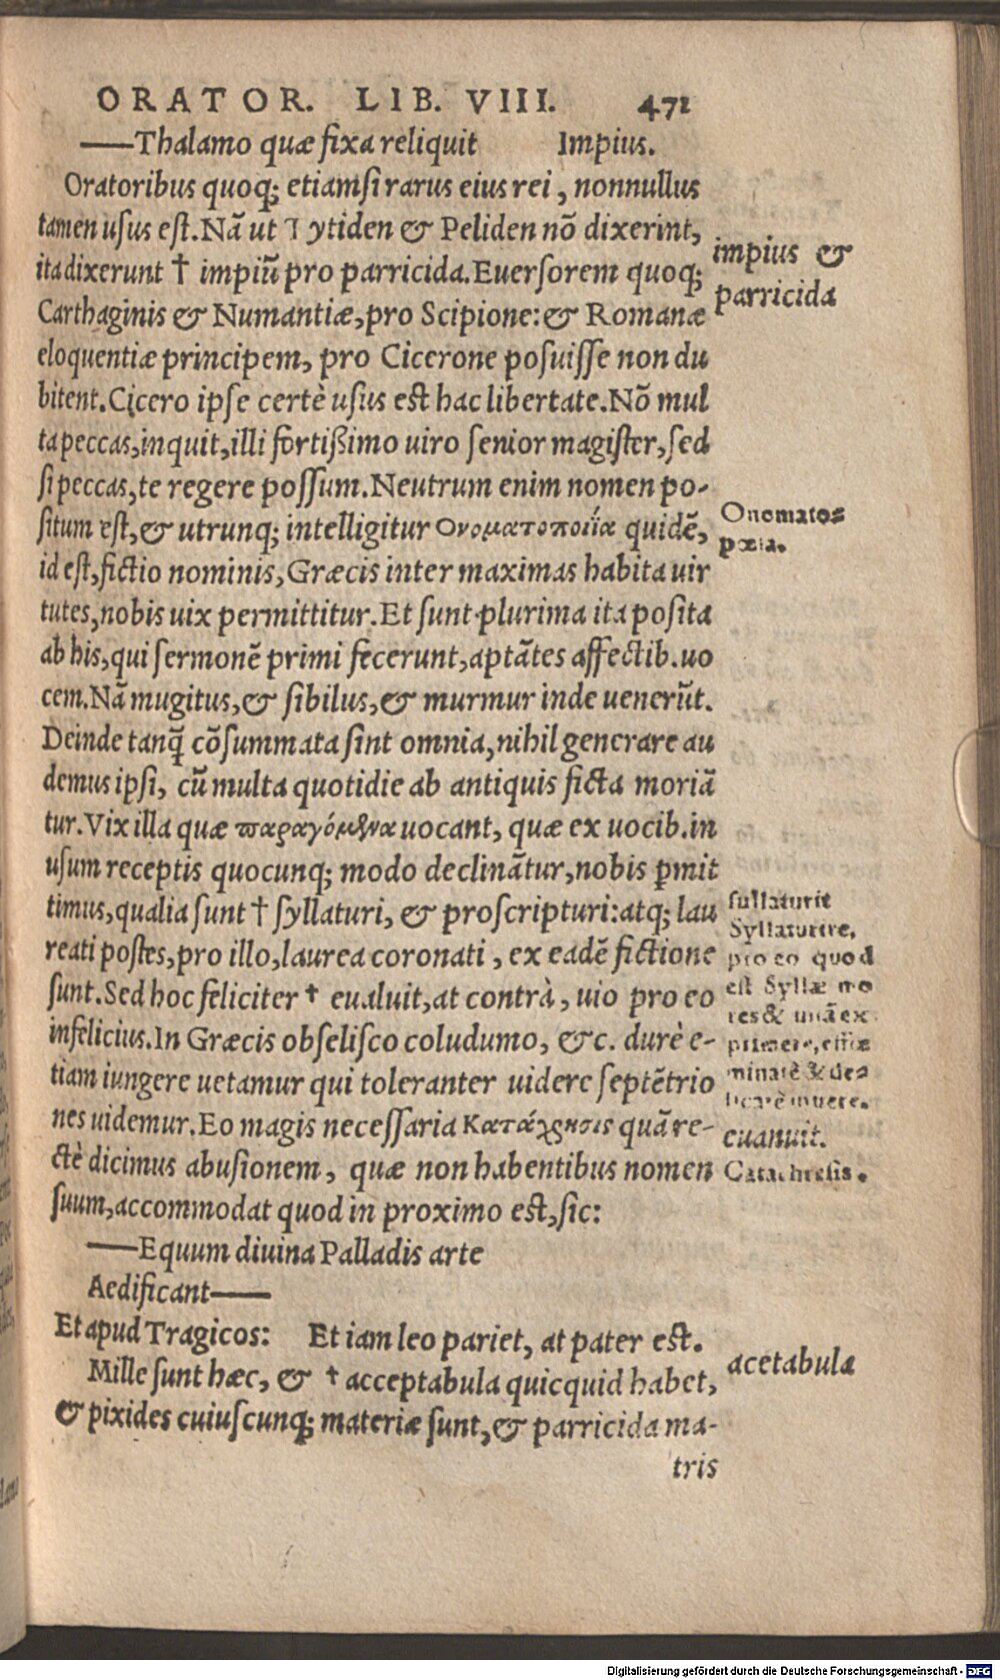 ORATOR. LIB. VIII. 471
——Thalamo quæ fixa reliquit Impius.
Oratoribus quoq; etiamsi rarus eius rei, nonnullus
tamen usus est. Nã ut ytiden & Peliden nõ dixerint,
ita dixerunt † impiũ pro parricida. Euersorem quoq;
impius &
parricida
Carthaginis & Numantiæ, pro Scipione: & Romanæ
eloquentiæ principem, pro Cicerone posuisse non du
bitent. Cicero ipse certè usus est hac libertate. Nõ mul
ta peccas, inquit, illi fortißimo uiro senior magister, sed
si peccas, te regere possum. Neutrum enim nomen po-
situm est, & utrunq; intelligitur Ονοματοποιΐα quidẽ,
Onomato-
pœia.
id est, fictio nominis, Græcis inter maximas habita uir
tutes, nobis uix permittitur. Et sunt plurima ita posita
ab his, qui sermonẽ primi fecerunt, aptãtes affectib. uo
cem. Nã mugitus, & sibilus, & murmur inde uenerũt.
Deinde tanq̃ cõsummata sint omnia, nihil generare au
demus ipsi, cũ multa quotidie ab antiquis ficta moriã
tur. Vix illa quæ παραγόμενα uocant, quæ ex uocib. in
usum receptis quocunq; modo declinãtur, nobis ꝑmit
timus, qualia sunt † syllaturi, & proscripturi: atq; lau
reati postes, pro illo, laurea coronati, ex eadẽ fictione
sunt. Sed hoc feliciter † eualuit, at contrà, uio pro eo
infelicius. In Græcis obselisco coludumo, &c. durè e-
tiam iungere uetamur qui toleranter uidere septẽtrio
nes uidemur. Eo magis necessaria Κατάχρησις quã re-
sullaturit
Syllaturire,
pro eo quod
est Syllæ mo
res & unã ex
primere,
&
euanuit.
Catachresis.
ctè dicimus abusionem, quæ non habentibus nomen
suum, accommodat quod in proximo est, sic:
——Equum diuina Palladis arte
Aedificant——
Et apud Tragicos: Et iam leo pariet, at pater est.
Mille sunt hæc, & † acceptabula quicquid habet,
acetabula
& pixides cuiuscunq; materiæ sunt, & parricida ma-
tris
Digitalisierung gefördert durch die Deutsche Forschungsgemeinschaft - DFG